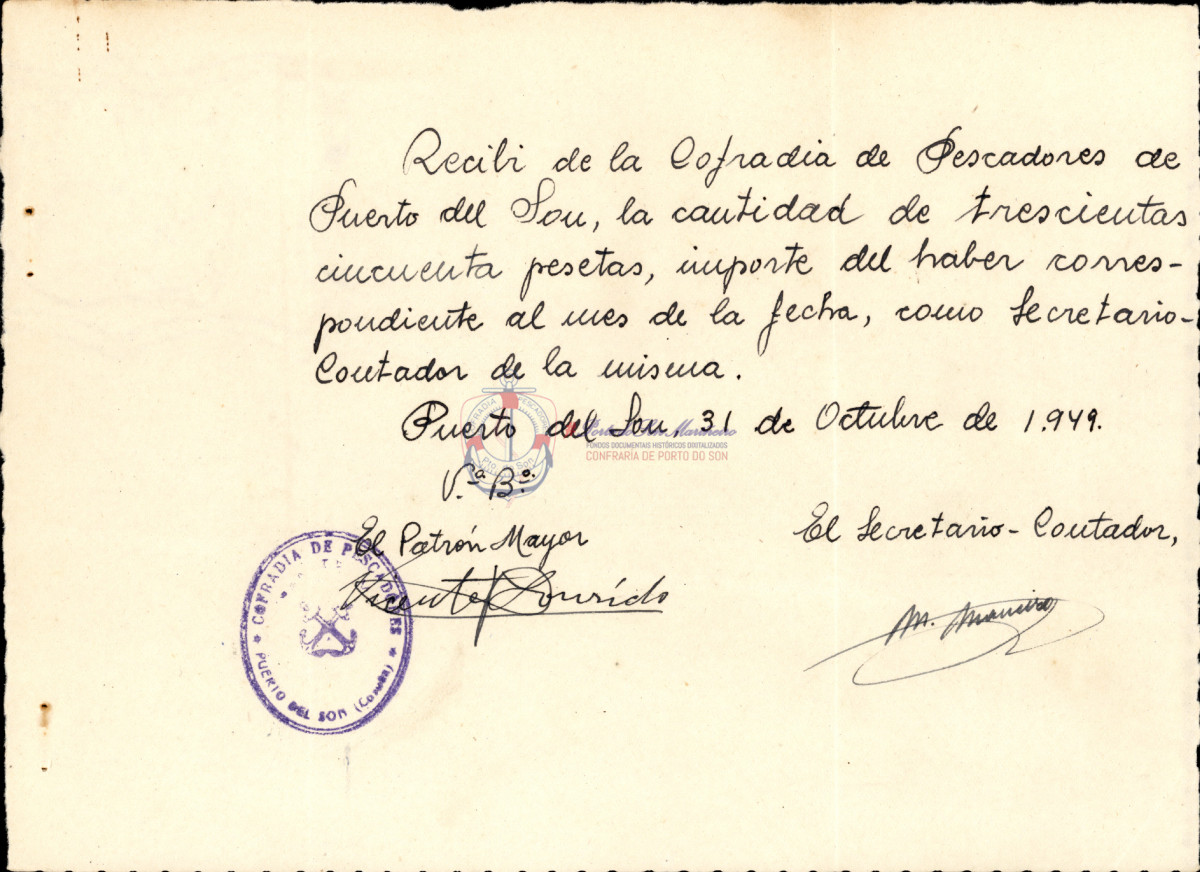 Recibi de la Cofradia de Pescadores de
Puerto del Son, la cantidad de trescientas
cincuenta pesetas, importe del haber corres-
pondiente al mes de la fecha, como Secretario-
Contador de la misma.
Puerto del Son, 31 de Octubre de 1.949.
FONDOS DOCUMENTAIS HISTÓRICOS DIXITALIZADOS
CONFRARÍA DE PORTO DO SON
V.º B.º
El Patrón Mayor
El Secretario-Contador,
Vicente Lourido
M. Maneiro
* COFRADIA DE PESCADORES *
PUERTO DEL SON (Coruña)